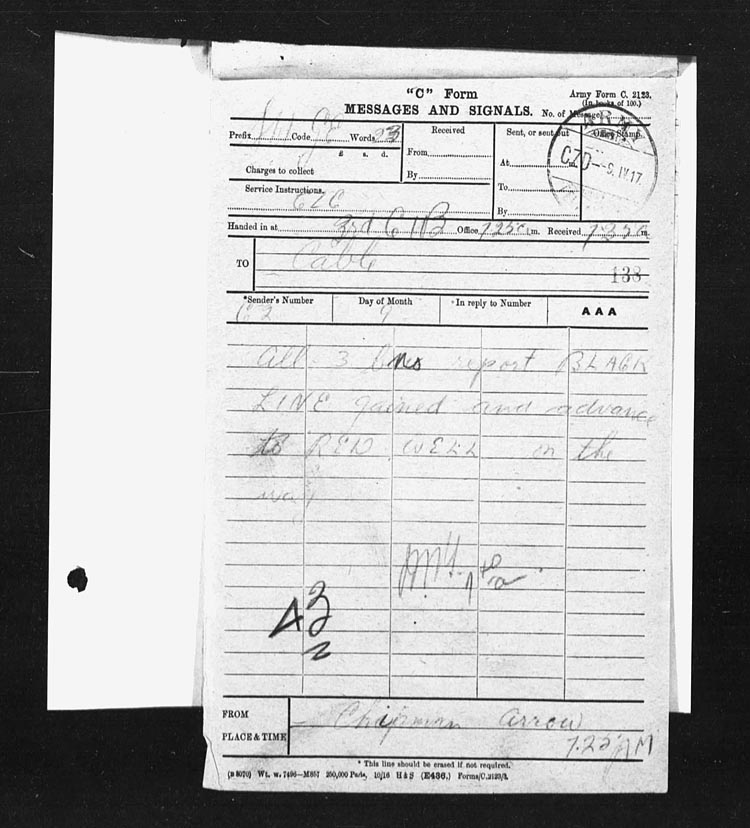 "C" Form
Army Form C. 2123.
(In books of 100.)
MESSAGES AND SIGNALS.
No. of Message
Prefix Code Words 23
£ s. d.
Charges to collect
Service Instructions.
Received
From
By
Sent, or sent out
At
To
By
Office Stamp.
CZD 9.IV.17
Handed in at 3rd Office 7.25 m. Received m.
TO Cable
133
*Sender's Number
Day of Month
In reply to Number
AAA
9
All 3 report BLACK
LINE gained and advance
to RED WELL on the
way
FROM Chapman Arrow
PLACE & TIME 7.25
* This line should be erased if not required.
(B 8070) Wt. w. 7496—M857 250,000 Pads, 10/16 H & S (E436.) Forms/C.2123/3.